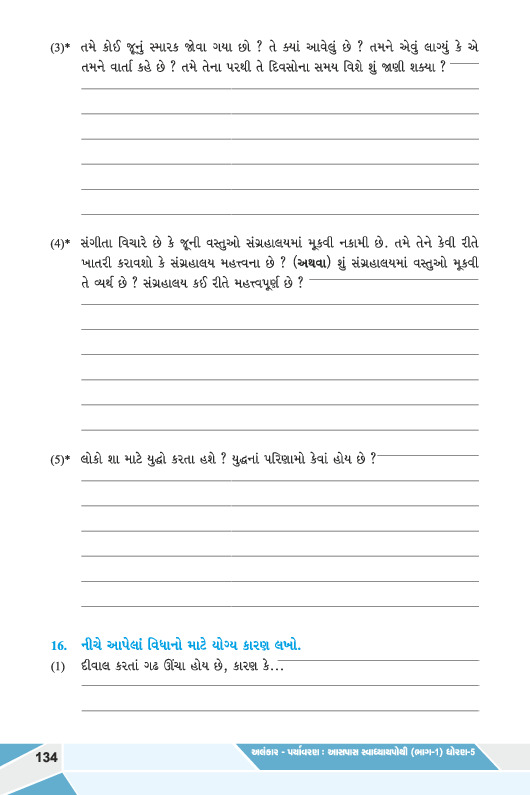 (3)* તમે કોઈ જૂનું સ્મારક જોવા ગયા છો ? તે ક્યાં આવેલું છે ? તમને એવું લાગ્યું કે એ
તમને વાર્તા કહે છે ? તમે તેના પરથી તે દિવસોના સમય વિશે શું જાણી શક્યા ?
(4)* સંગીતા વિચારે છે કે જૂની વસ્તુઓ સંગ્રહાલયમાં મૂકવી નકામી છે. તમે તેને કેવી રીતે
ખાતરી કરાવશો કે સંગ્રહાલય મહત્ત્વના છે ? (અથવા) શું સંગ્રહાલયમાં વસ્તુઓ મૂકવી
તે વ્યર્થ છે ? સંગ્રહાલય કઈ રીતે મહત્ત્વપૂર્ણ છે ?
(5)* લોકો શા માટે યુદ્ધો કરતા હશે ? યુદ્ધનાં પરિણામો કેવાં હોય છે ?
16. નીચે આપેલાં વિધાનો માટે યોગ્ય કારણ લખો.
(1) દીવાલ કરતાં ગઢ ઊંચા હોય છે, કારણ કે...
134
અલંકાર - પર્યાવરણ : આસપાસ સ્વાધ્યાયપોથી (ભાગ-1) ધોરણ-5